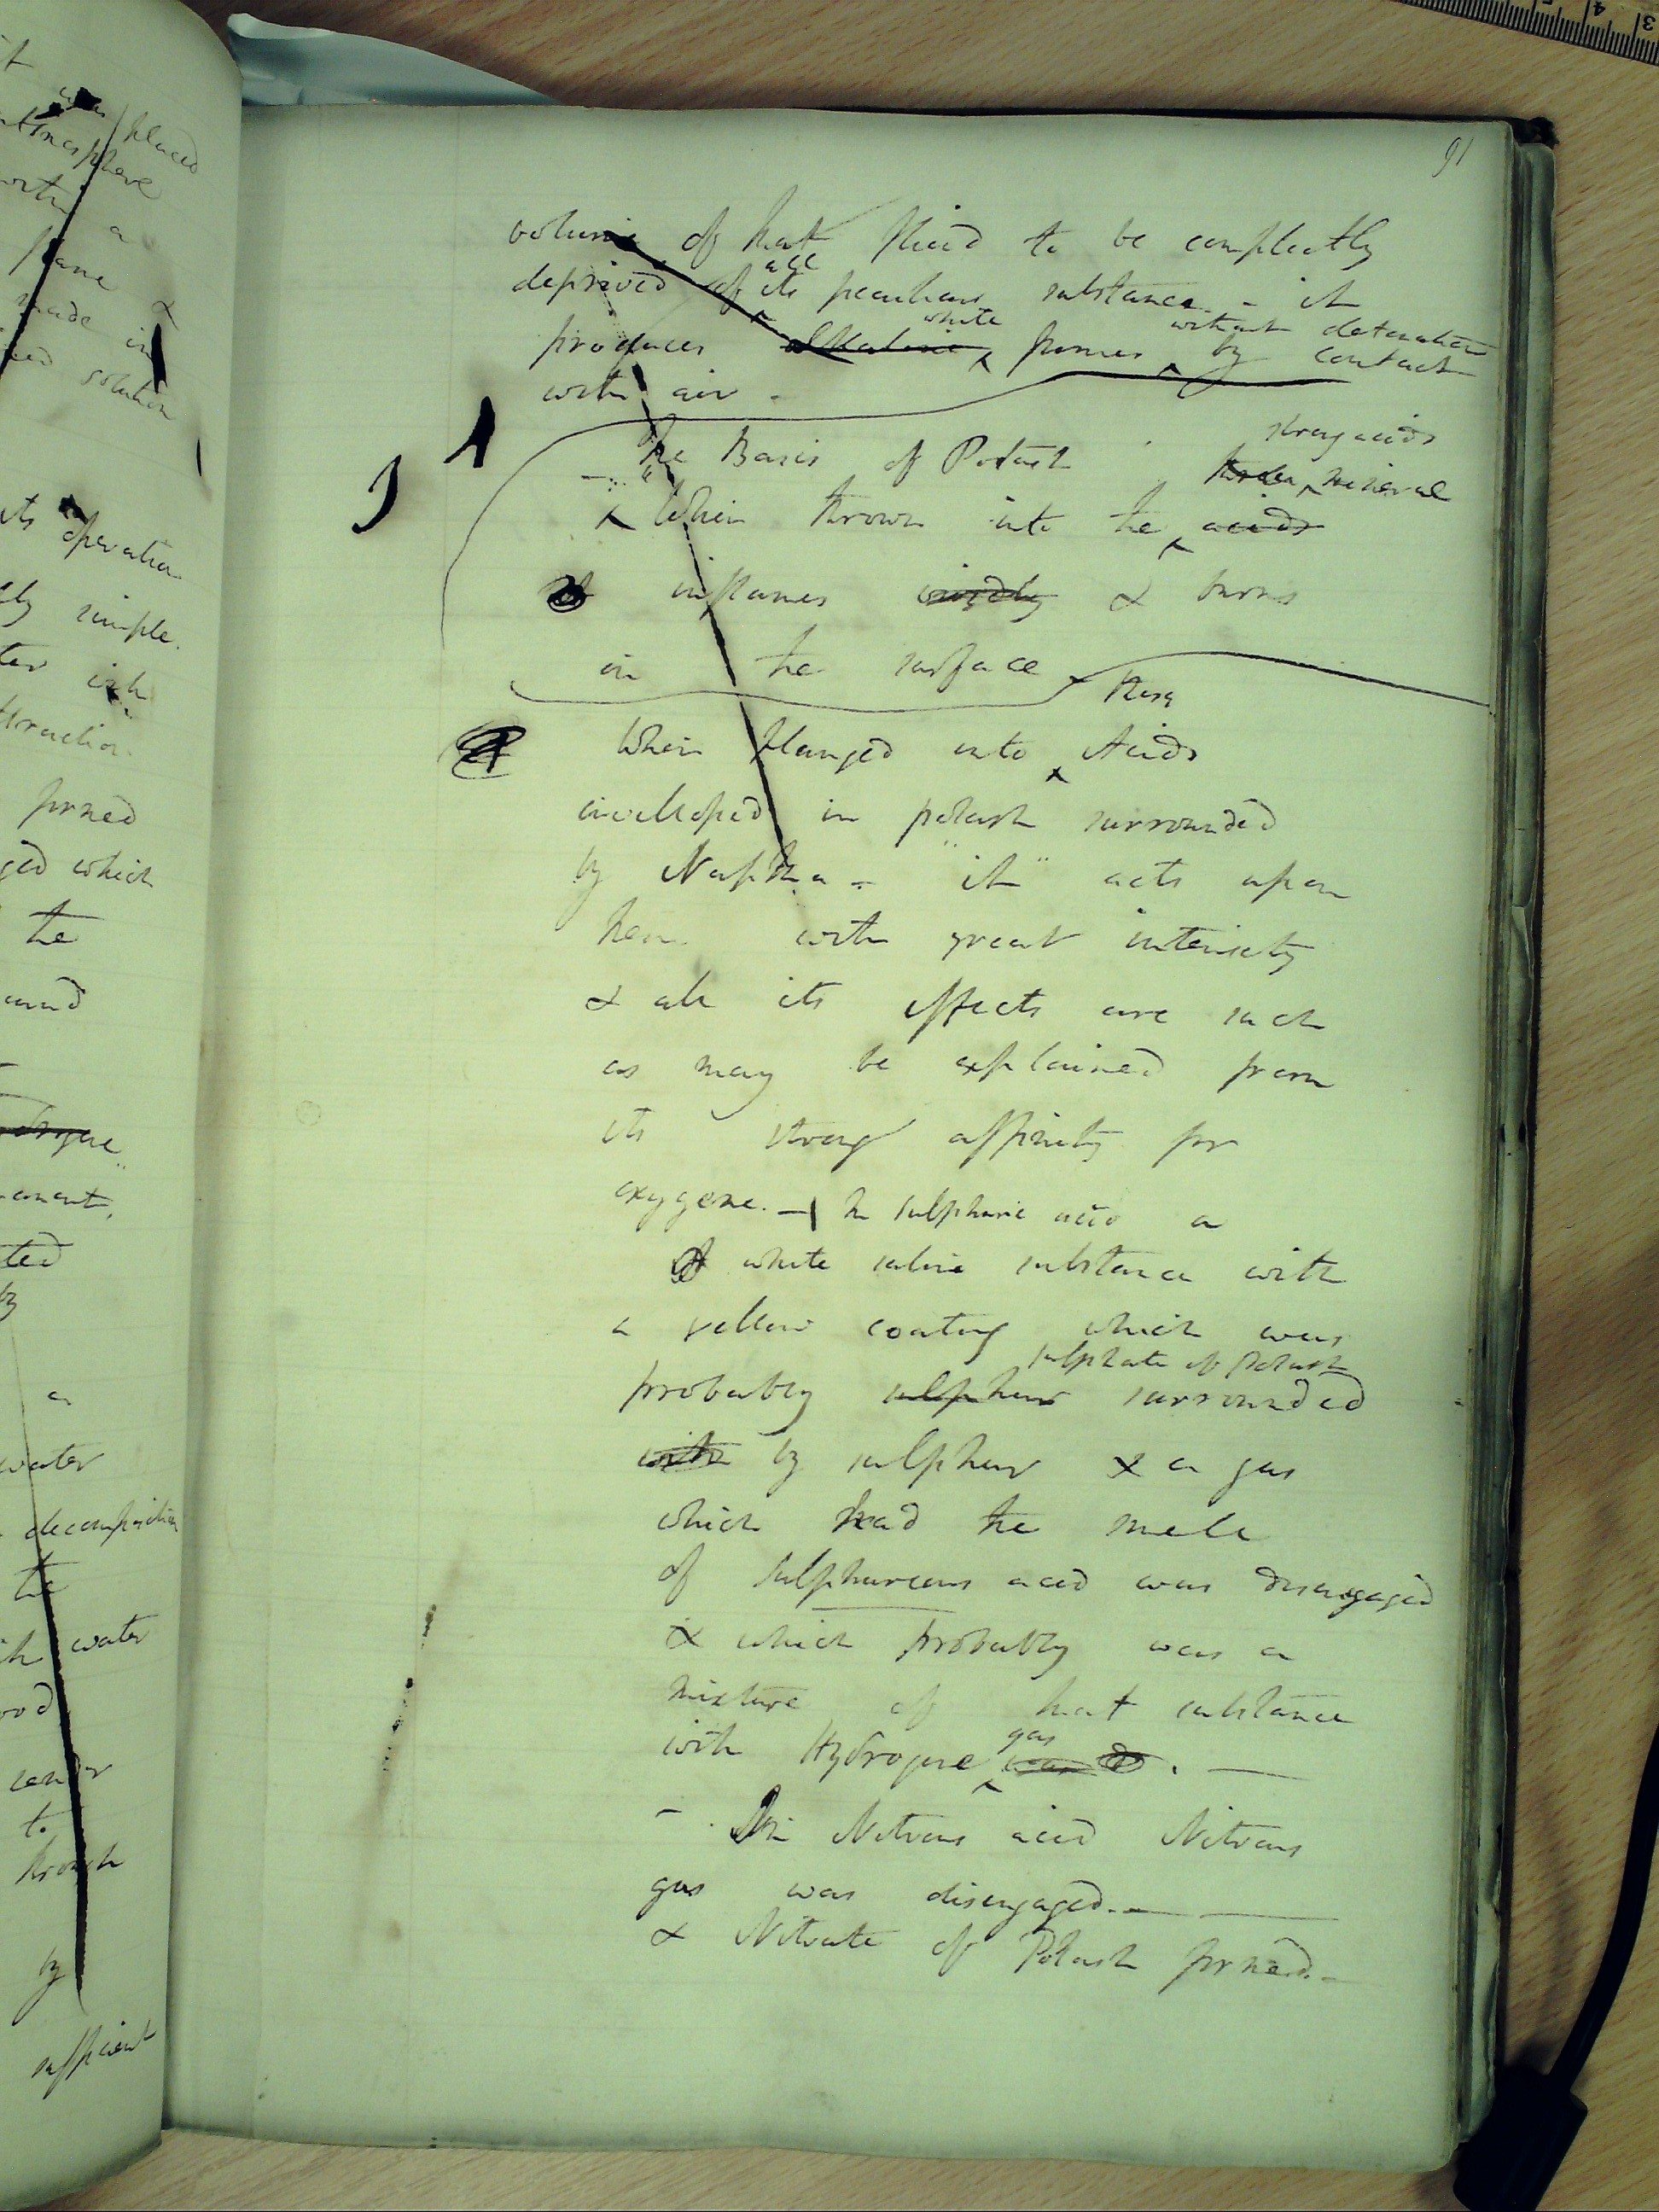 91
volume of that fluid to be compleatly
all
deprived of its peculiar substance - it
white without detonation
produces alkaline fumes by contact
with air -
1
strong acids
The Basis of Potash three mineral
J
When thrown into the acids
inflames vividly & burns
on the surface
these
When plunged into Acids
invelloped in potash surrounded
by Naptha - it acts upon
them with great intensity
& all its effects are such
as may be explained from
its strong affinity for
oxygene. - In sulphuric acid a
white saline substance with
a yellow coating which was
sulphate of Potash
probably sulphur surrounded
with by sulphur & a gas
which had the smell
of sulphureous acid was disengaged
& which probably was a
mixture of that substance
gas
with Hydrogene
- In Nitrous acid Nitrous
gas was disengaged. -
& Nitrate of Potash formed. -
was placed
atmosphere
with a
flame &
made in
solution
its operation
simple.
formed
which
the
ted
by
a
water
decomposition
the
water
to
through
by
sufficient
3
4
5